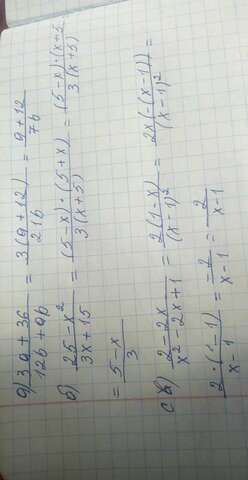 а) 3a + 36 / 12b + 9b = 3(9 + 12) / 21b = 9 + 12 / 7b
б) 25 - x² / 3x + 15 = (5 - x) · (5 + x) / 3(x + 5) = (5 - x) · (x + 5 / 3(x + 5)
= 5 - x / 3
в) 2 - 2x / x² - 2x + 1 = 2(1 - x) / (x - 1)² = 2x(-(x - 1)) / (x - 1)² =
2 · (-1) / x - 1 = -2 / x - 1 = - 2 / x - 1